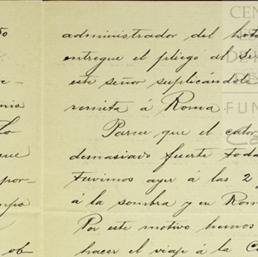 to
nia
Lo
que
por-
mpo
ob
administrador del hote
entregue el pliego al Se
este señor suplicándole
remita á Roma
Parece que el calor
demasiado fuerte toda
tuvimos ayer á las 2
á la sombra y en Rom
Por este motivo hemos
hacer el viaje á la C
CEN
DO
DE
FUN